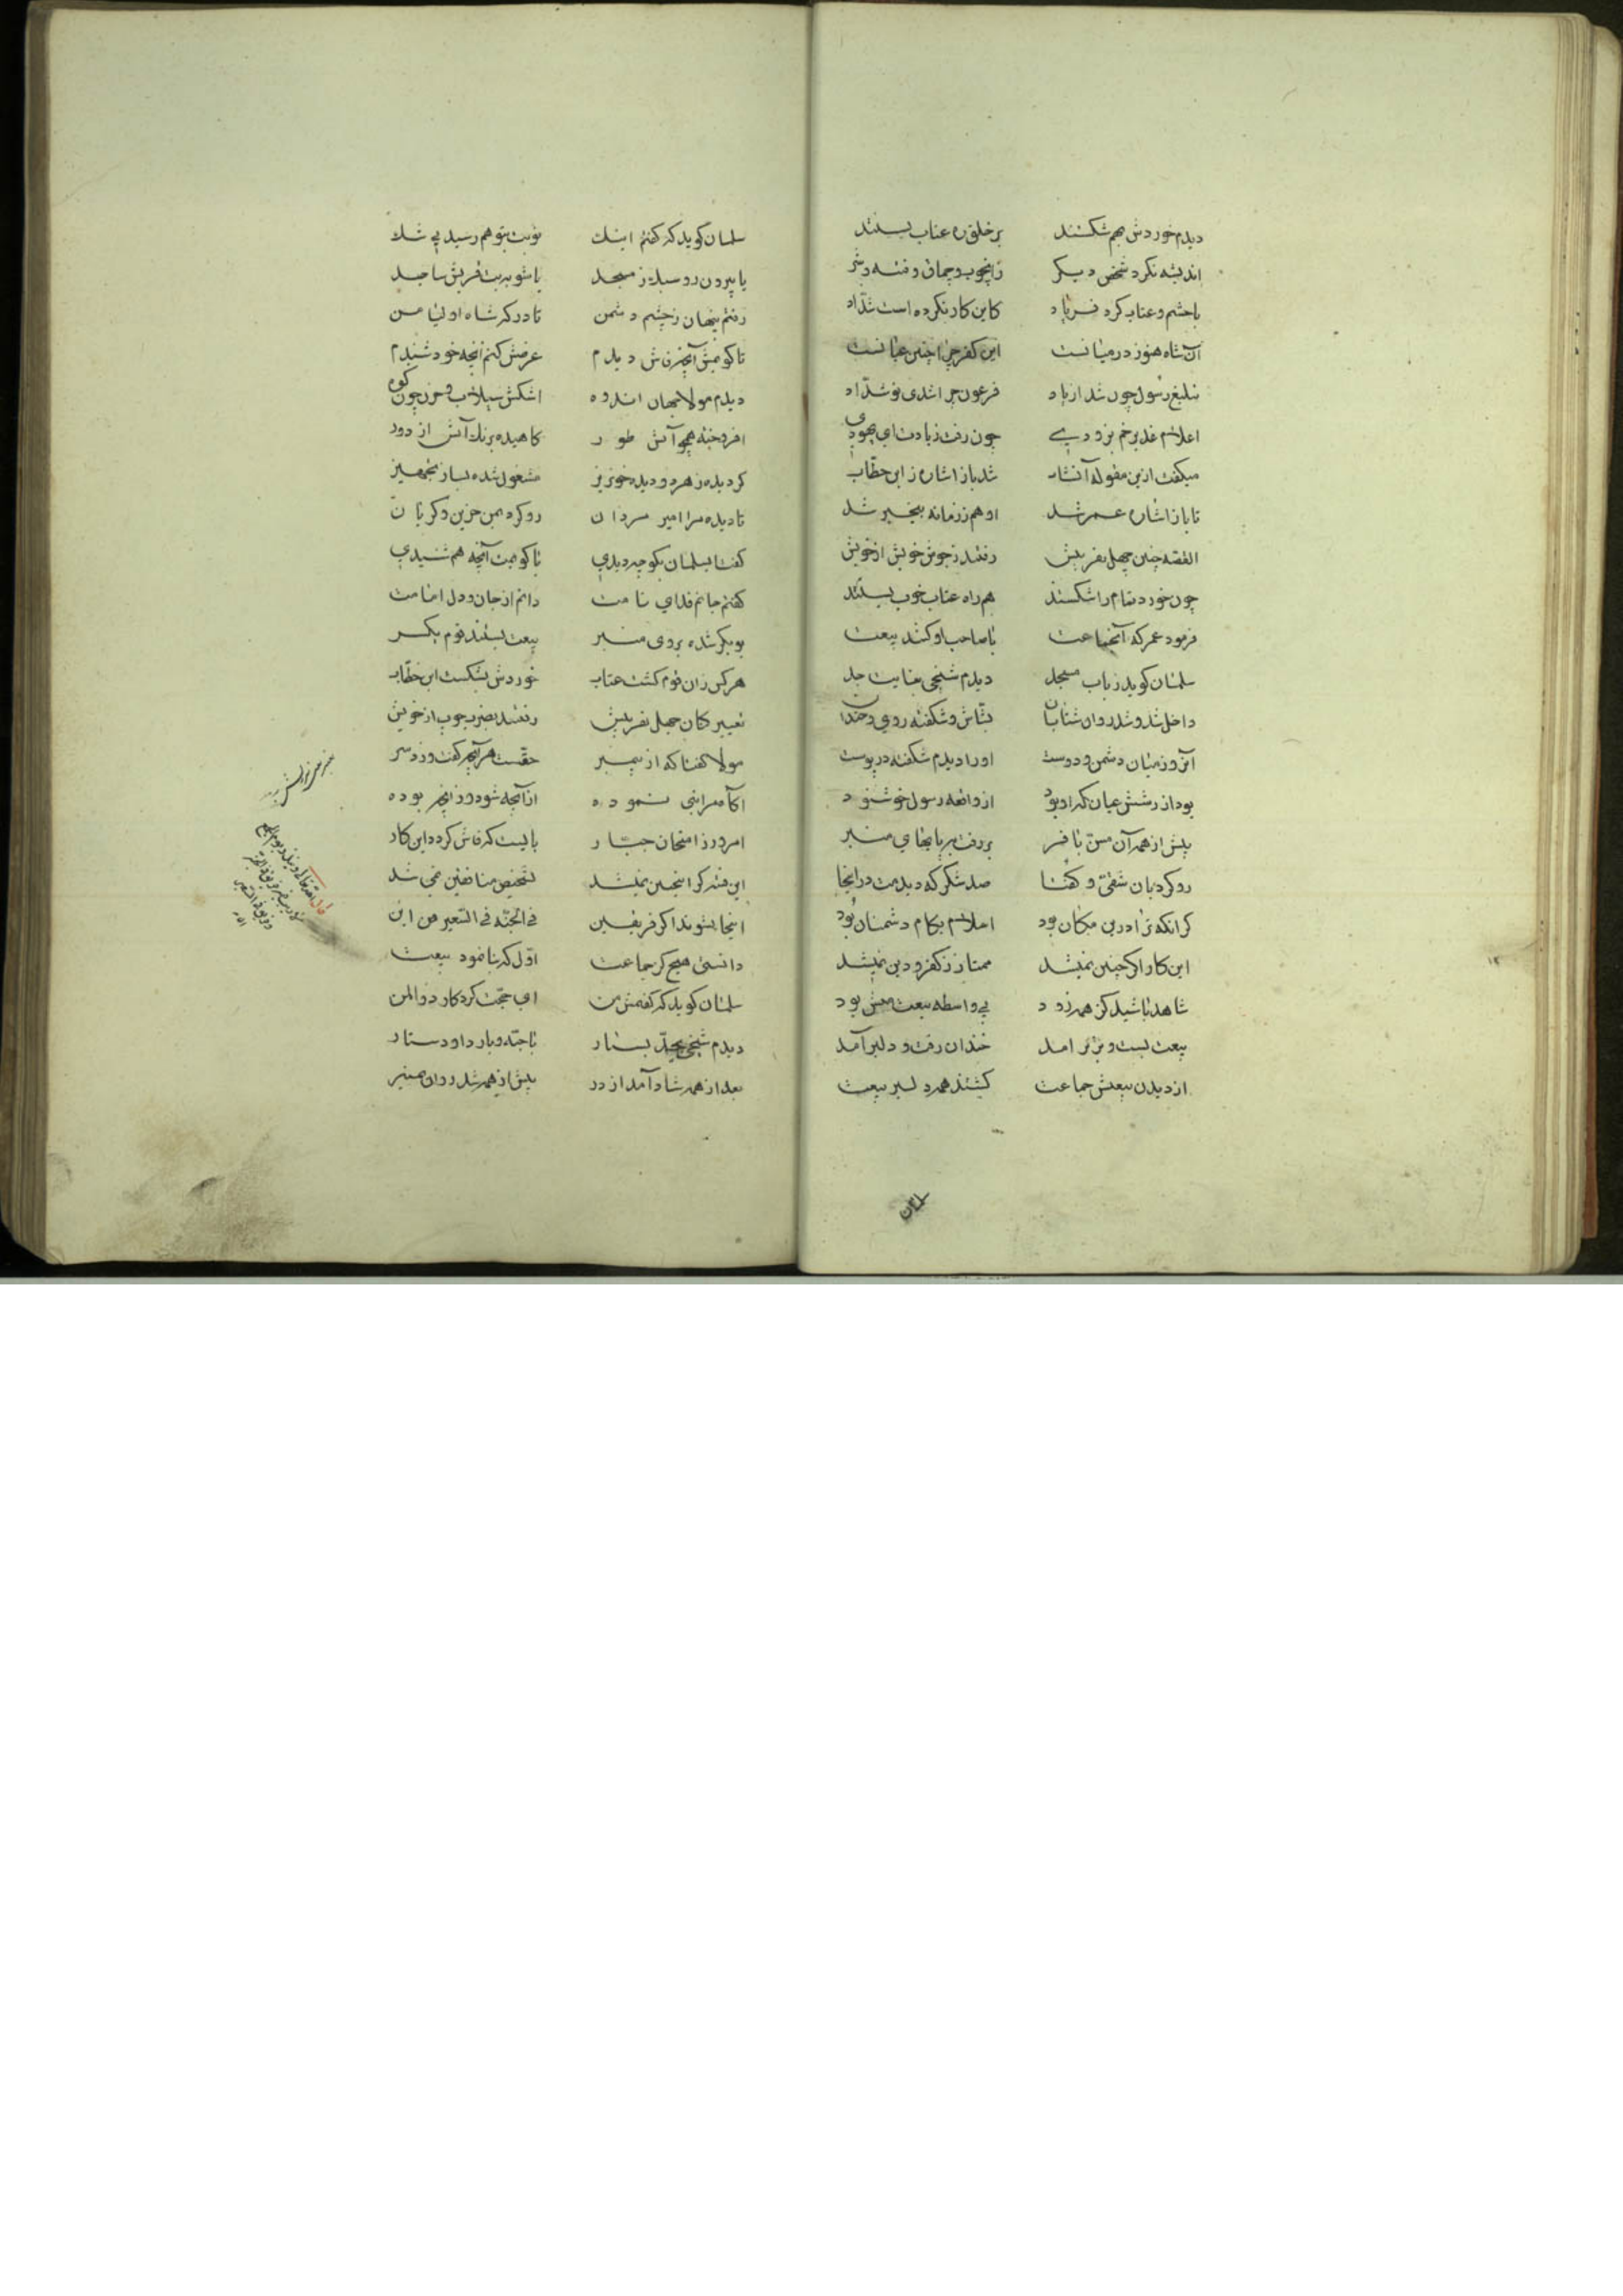 دیدم خوردش بهم شکستند برخلق ره عتاب بستند
اندیشه نکرد شخص دیگر زانچوب و چماق و فتنه و شر
باخشم و عتاب کرد فریاد کاین کار نکرده است شدّاد
آن شاه هنوز در میانست این کفر چرا چنین عیانست
تبلیغ رسول چون شد از یاد فرعون چرا شدی تو شدّاد
اعلام غدیر خم بزودی چون رفت ز یادت ای یهودی
میگفت ازین مقوله آنشاب شد باز اشاره ز ابن خطّاب
تا باز اشاره عمر شد او هم ز زمانه بیخبر شد
القصه چنین چهل نفر بیش رفتند ز جوش خویش از خویش
چون خورد تمام را شکستند هم راه عتاب خوب بستند
فرمود عمر که آنجماعت با صاحب او کنند بیعت
سلمان گوید ز باب مسجد دیدم شیخی بغایت جد
داخل شد و شد روان شتابان بشّاش و شکفته روی و خندان
آنروز میان دشمن و دوست اورا دیدم شکفته در پوست
بود از رشش عیان که او بود از واقعه رسول خوشنود
پیش از همه آن مسنّ با فر بر رفت بر پایهای منبر
رو کرد بان شقیّ و گفتا صد شکر که دیدمت در اینجا
گر آنکه ترا درین مکان بود اسلام بکام دشمنان بود
این کار اگر چنین نمیشد ممتاز ز کفر و دین نمیشد
شاهد باشید کز همه زود بی واسطه بیعت منش بود
بیعت بست و بزیر امد خندان رفت و دلیر آمد
از دیدن بیعتش جماعت گشتند همه دلیر بیعت
سلمان
۱۲
سلمان گوید که گفتم اینک نوبت بتو هم رسید بی شک
یا بیرون رو سبک ز مسجد یا شو به بت قریش ساجد
رفتم پنهان ز چشم دشمن تا درگه شاه اولیا من
تا گویمش آنچه زانش دیدم عرضش کنم آنچه خود شنیدم
دیدم مولا بجهان اندوه اشکش سیلاب و حزن چون کوه
افروخته همچو آتش طور کاهیده برنک آتش از دود
گردیده ز هر دو دیده خونریز مشغول شده بساز تجهیز
تا دیده مرا امیر مردان رو کرد بمن حزین و گریان
گفتا سلمان بگو چه دیدی تا گویمت آنچه هم شنیدی
گفتم جانم فدای نامت دانم از جان و دل امامت
بوبکر شده بروی منبر بیعت بستند قوم یکسر
هر کس زان قوم گشت عتاب خوردش بشکست ابن خطّاب
تغییر کنان چهل نفر بیش رفتند بضرب چوب از خویش
مولا گفتا که از پیمبر حقست هر آنچه گفت و زد سر
اگاه مرا نبی نموده از آنچه شود وز آنچه بوده
امروز ز امتحان جبّار بایست که فاش گردد این کار
این فتنه گر اینچنین نمیشد تشخیص منافقین نمی شد
اینجا بشوند اگر فریقین فی الجنّه فی السّعیر من این
دانستی هیچ کز جماعت اوّل که بنا نمود بیعت
سلمان گوید که گفتمش من ای حجّت کردگار ذوالمن
دیدم شیخی بجدّ بسیار با جبّه و با ردا و دستار
بعد از همه شاد آمد از در پیش از همه شد روان بمنبر
قال الله تعالی و تنذر یوم الجمع
لا ریب فیه فریق فی الجنة
و فریق فی السعیر